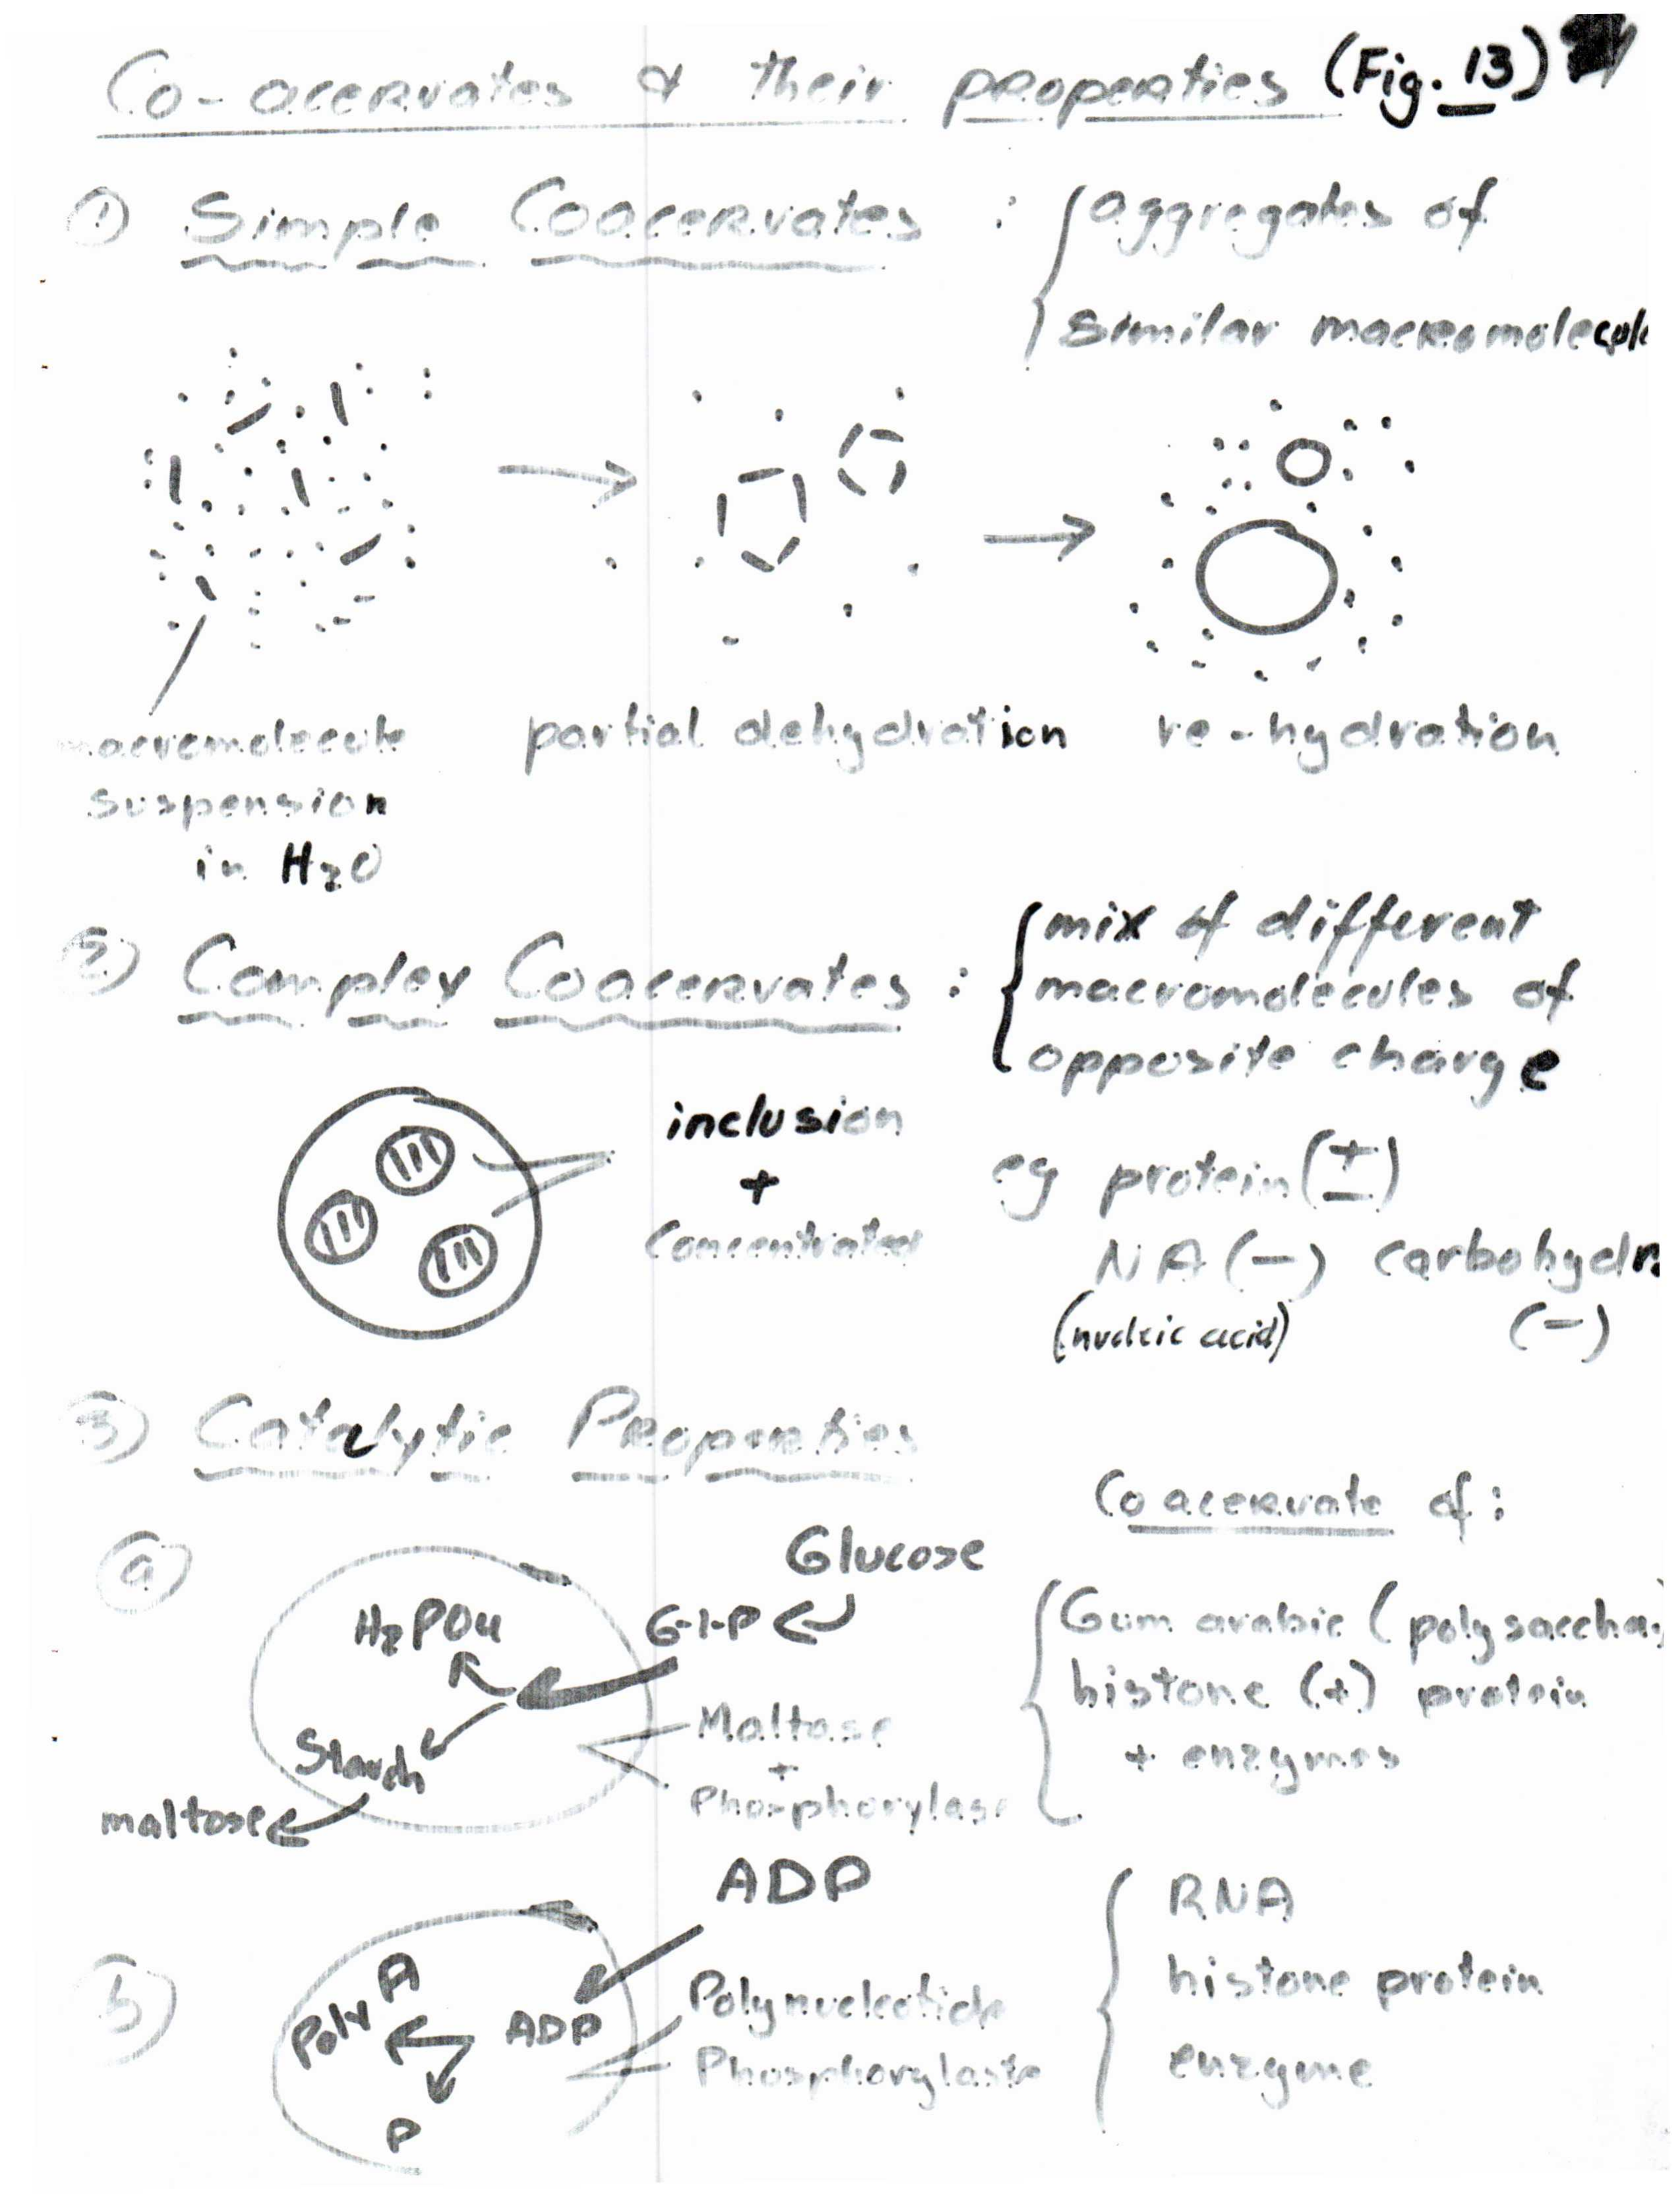 Co-acervates & their properties (Fig. 13)
① Simple Coacervates : { aggregates of
similar macromolecule
macromolecule
suspension
in H2O
partial dehydration
re-hydration
② Complex Coacervates : { mix of different
macromolecules of
opposite charge
inclusion
+
Concentrated
eg protein (±)
NA (-) carbohydr
(nucleic acid) (-)
③ Catalytic Properties
Coacervate of :
ⓐ
Glucose
G-1-P
H2PO4
Starch
maltose
Maltase
+
Phosphorylase
Gum arabic (polysacchar
histone (+) protein
+ enzymes
ⓑ
ADP
ADP
Poly A
P
Polynucleotide
Phosphorylase
RNA
histone protein
enzyme